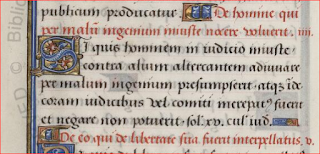 publicum producatur De homine qui
per malum ingenium iniuste nocere voluerit. iiii.
Si quis hominem in iudicio iniuste
contra alium altercantem adiuuare
per malum ingenium presumpserit atqз īde
coram iudicibus vel comiti increpatꝰ fuerit
et negare non potuerit. sol. xv. cul iud.
De eo qui de libertate sua fuerit interpellatus. v.